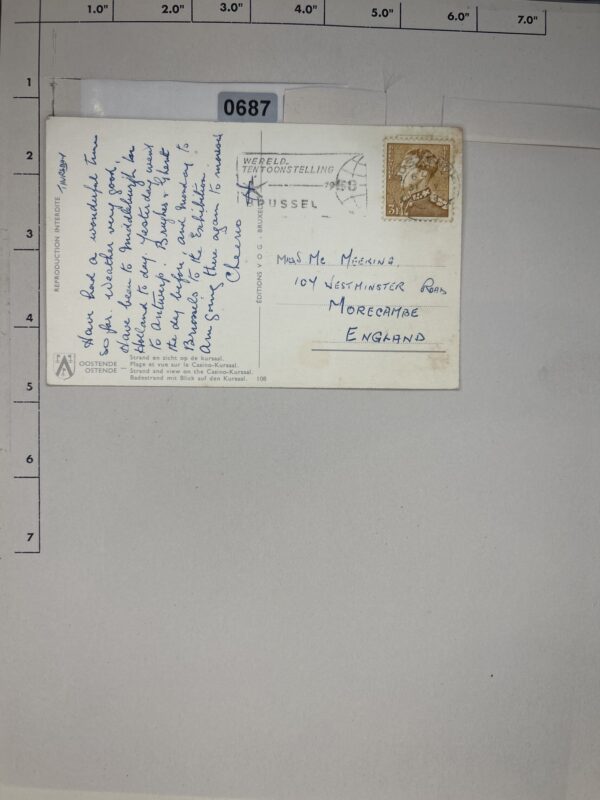 1.0" 2.0" 3.0" 4.0" 5.0" 6.0" 7.0"
1
2
3
4
5
6
7
0687
REPRODUCTION INTERDITE
THURSDAY
Have had a wonderful time
so far. Weather very good,
Have been to Middleburgh in
Holland to day. Yesterday went
to Antwerp. Brughes & Ghent
the day before, and Monday to
Brussels to the Exhibition.
Am going there again to morrow
Cheerio
OOSTENDE
OSTENDE
Strand en zicht op de kursaal.
Plage et vue sur le Casino-Kursaal.
Strand and view on the Casino-Kursaal.
Badestrand mit Blick auf den Kursaal. 108
EDITIONS V O G - BRUXELLES
WERELD-
TENTOONSTELLING
Mc MEEKING.
104 WESTMINSTER ROAD
MORECAMBE
ENGLAND